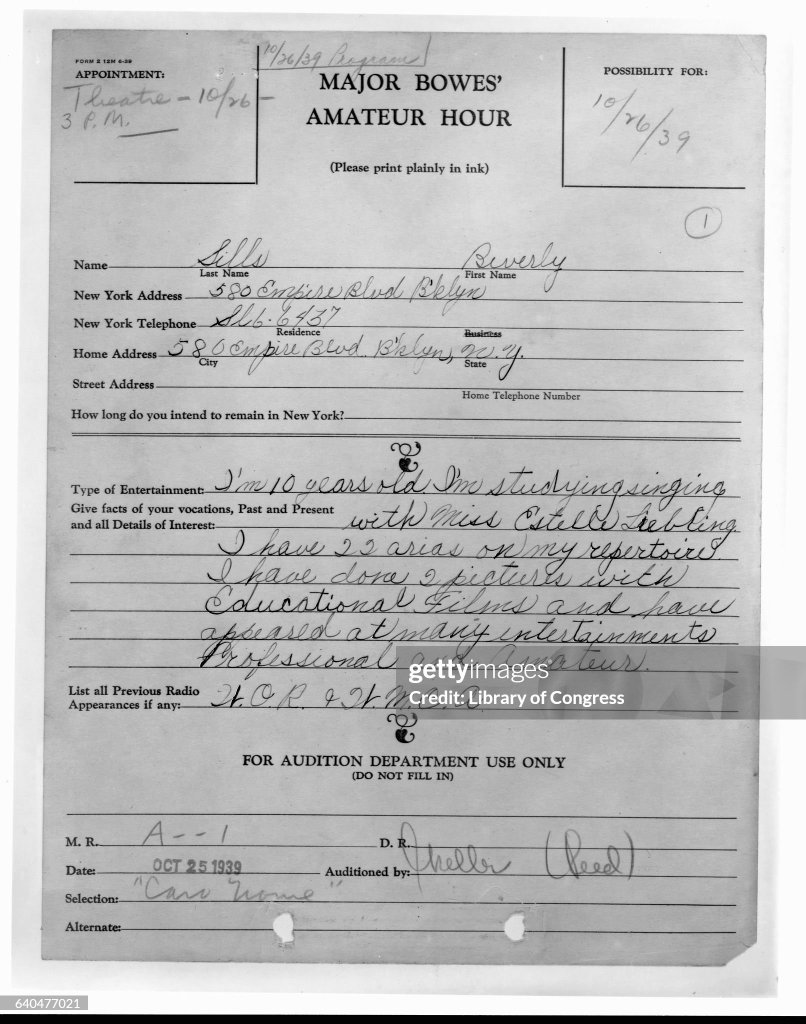 FORM 2 12M 6-39
10/26/39 Program
APPOINTMENT:
Theatre - 10/26 -
3 P.M.
MAJOR BOWES'
AMATEUR HOUR
(Please print plainly in ink)
POSSIBILITY FOR:
10/26/39
1
Name Sills Beverly
Last Name First Name
New York Address 580 Empire Blvd B'klyn
New York Telephone Sl6-6437
Residence Business
Home Address 580 Empire Blvd. B'klyn, N.Y.
City State
Street Address
Home Telephone Number
How long do you intend to remain in New York?
Type of Entertainment: I'm 10 years old. I'm studying singing
Give facts of your vocations, Past and Present
and all Details of Interest: with Miss Estelle Liebling.
I have 22 arias on my repertoire.
I have done 2 pictures with
Educational Films and have
appeared at many entertainments
Professional and Amateur.
gettyimages
Credit: Library of Congress
List all Previous Radio
Appearances if any: W.O.R. & W.M.C.A.
FOR AUDITION DEPARTMENT USE ONLY
(DO NOT FILL IN)
M. R. A--1 D. R.
Date: OCT 25 1939 Auditioned by: (Reed)
Selection: "Caro Nome"
Alternate:
640477021